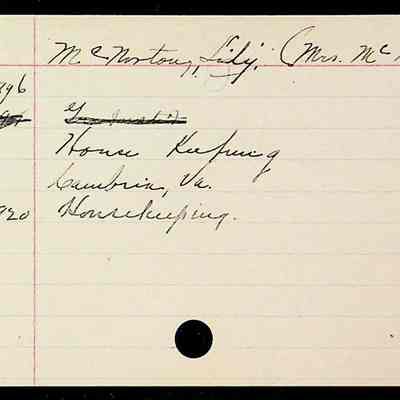 Mc Nortong, Lily. (Mrs. Mc
896
House Keeping
Cambria, Va.
920 Housekeeping.